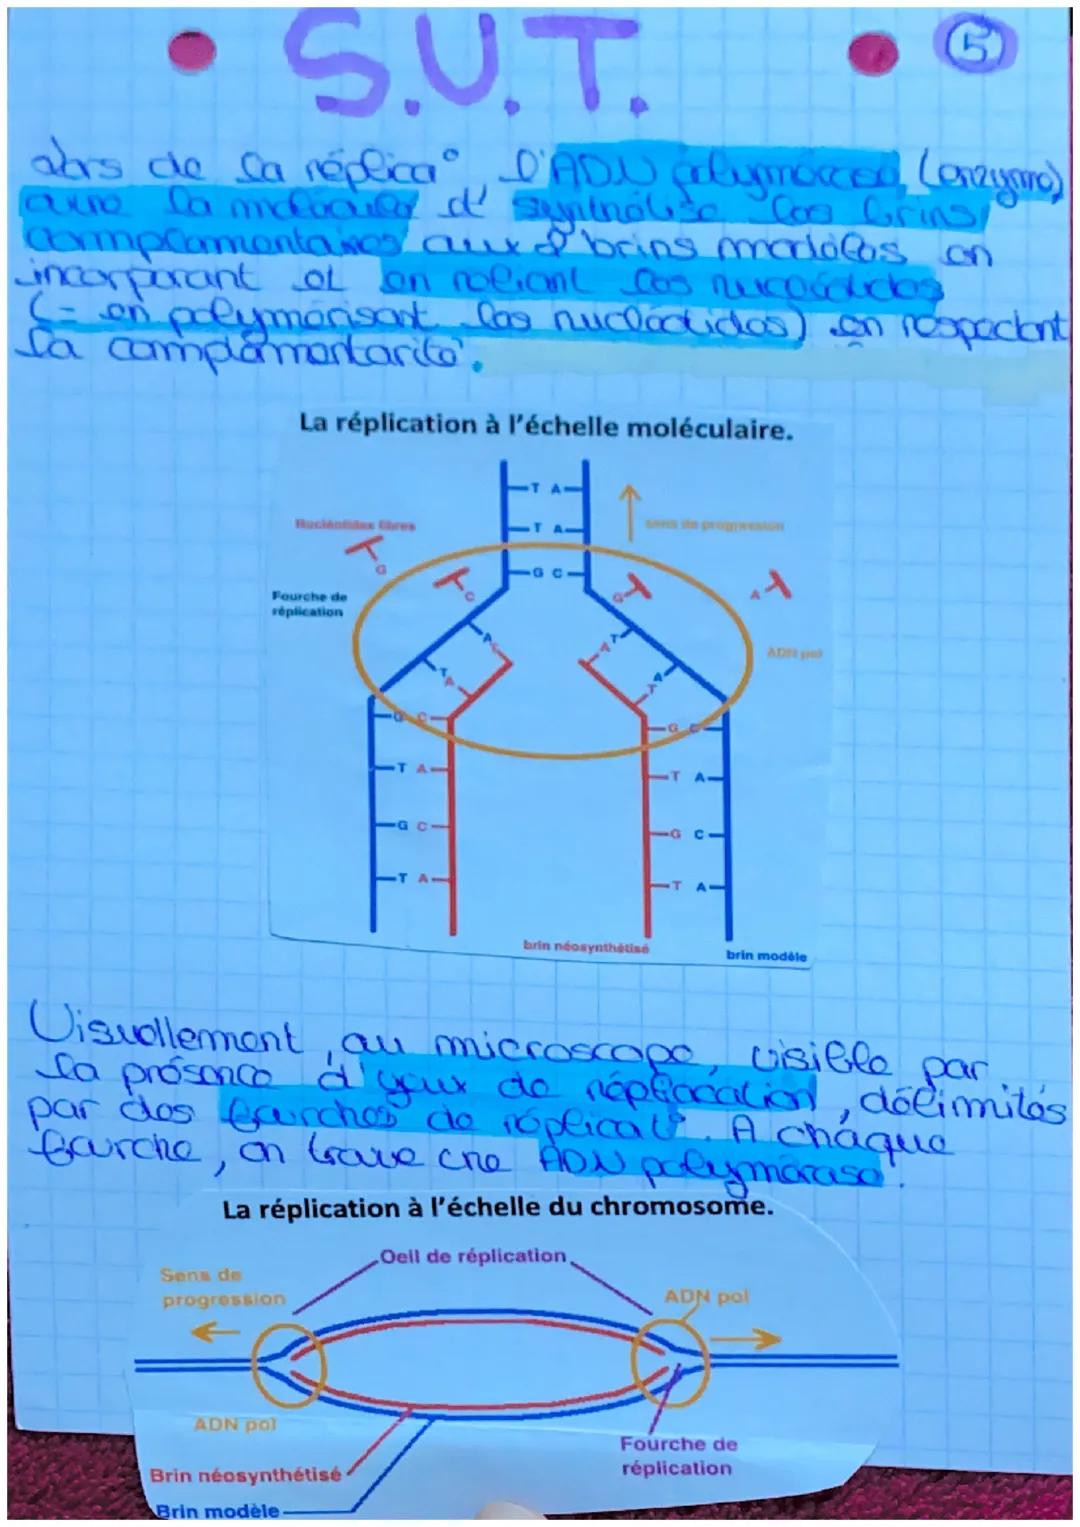 S.V.T.
5
lors de la réplica° l'ADN polymérase (enzyme)
d' synthétise les brins
complémentaires aux 2 brins modèles en
incorporant et en reliant les nucléotides
(= en polymérisant les nucléotides) en respectant
la complémentarité.
La réplication à l'échelle moléculaire.
T A
Nucléotides libres
sens de progression
T A
G
G C
C
G
A
Fourche de
réplication
A T
A T
ADN pol
T A
T A
G C
G C
T A
T A
G C
G C
T A
T A
brin néosynthétisé
brin modèle
Visuellement, au microscope, visible par
la présence d'yeux de réplication, délimités
par des fourches de réplicat°. A chaque
fourche, on trouve une ADN polymérase.
La réplication à l'échelle du chromosome.
Oeil de réplication
Sens de
progression
ADN pol
ADN pol
Fourche de
réplication
Brin néosynthétisé
Brin modèle